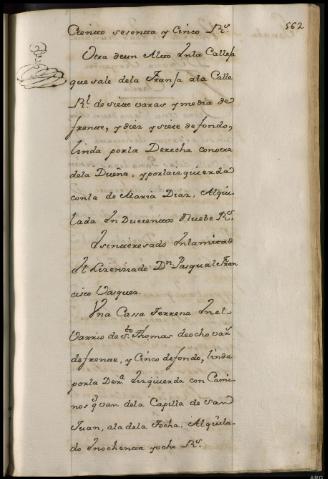 562
Ciento sesenta y Cinco R.s
Otra de un Alto In la Calle,
que sale dela Franja ala Calle
R.l de siete varas y media de
frente, y diez y siete de fondo,
linda por la Derecha con otra
dela Dueña, y por la izquierda
con la de Maria Diaz, Alqui-
lada In Duecientos Nuebe R.s
Isinteresado In la mitad
el Lizenziado D.n Pasqual Fran
cisco Vasquez
Una Cassa Terrena In el
Varrio de S.to Thomas de ocho var.s
de frente, y Cinco de fondo, linda
por la Der.a Izquierda con Cami
nos q.e van dela Capilla de San
Juan, ala dela Atocha, Alquila-
da In ochenta y ocho R.s